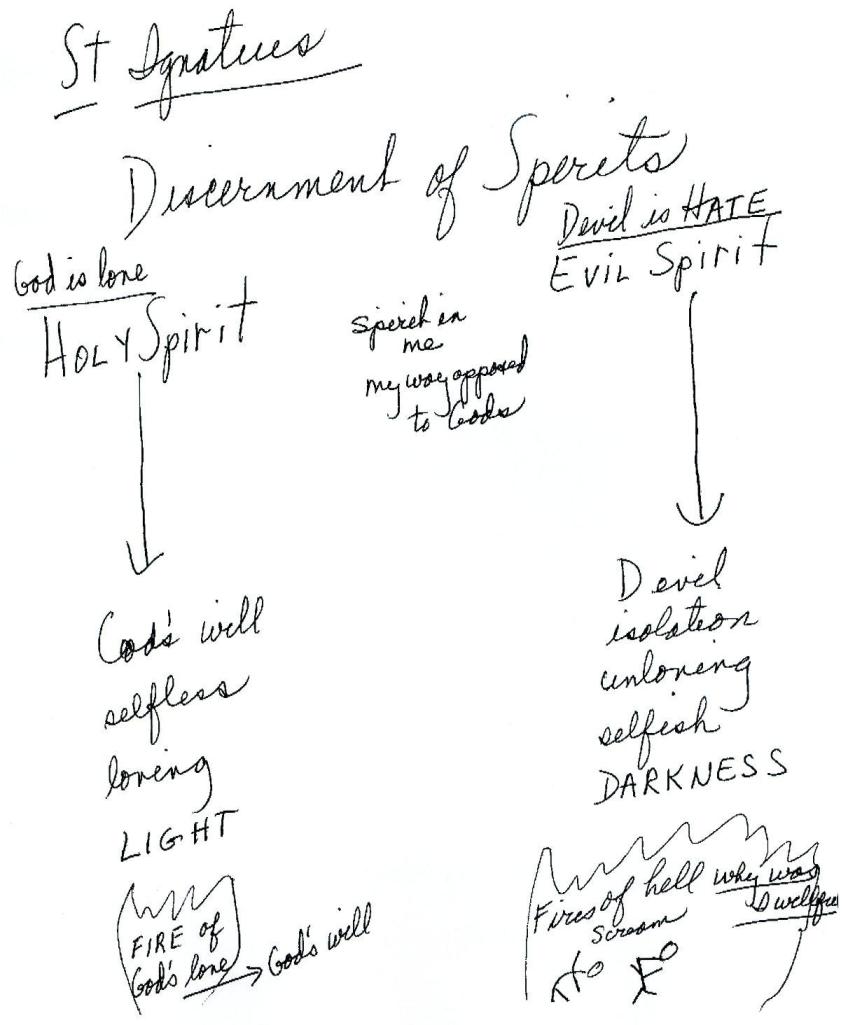 St Ignatius
Discernment of Spirits
Devil is HATE
EVIL Spirit
God is love
HOLY Spirit
spirit in
me
my way opposed
to God's
God's will
selfless
loving
LIGHT
FIRE of
God's love → God's will
Devil
isolation
unloving
selfish
DARKNESS
Fires of hell why was
Scream